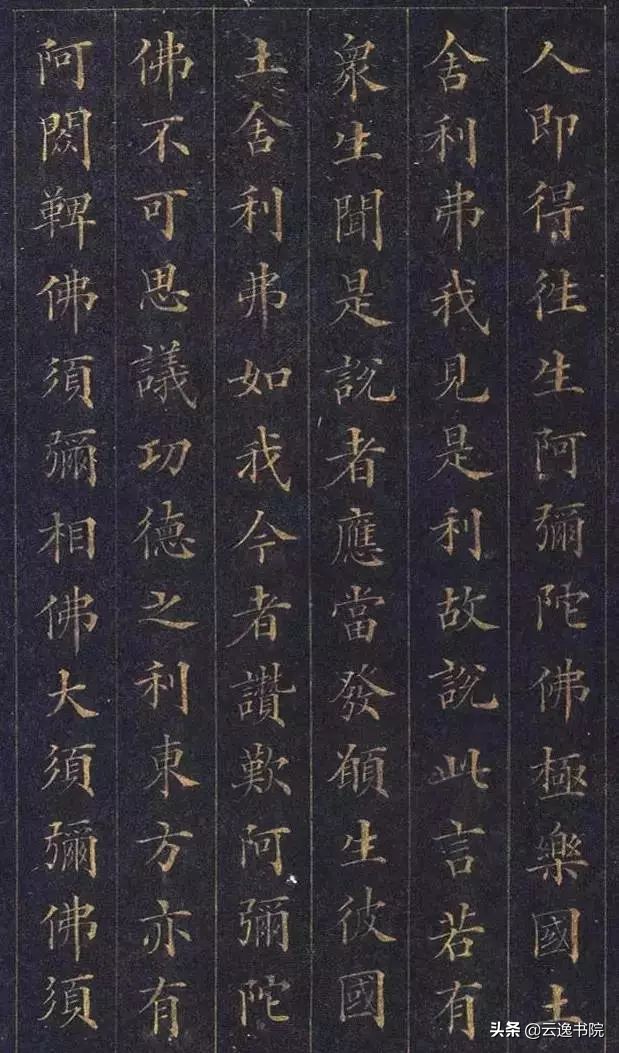 人即得徃生阿彌陀佛極樂國土
舍利弗我見是利故說此言若有
衆生聞是說者應當發願生彼國
土舍利弗如我今者讚歎阿彌陀
佛不可思議功德之利東方亦有
阿閦鞞佛須彌相佛大須彌佛須
头条 @云逸书院